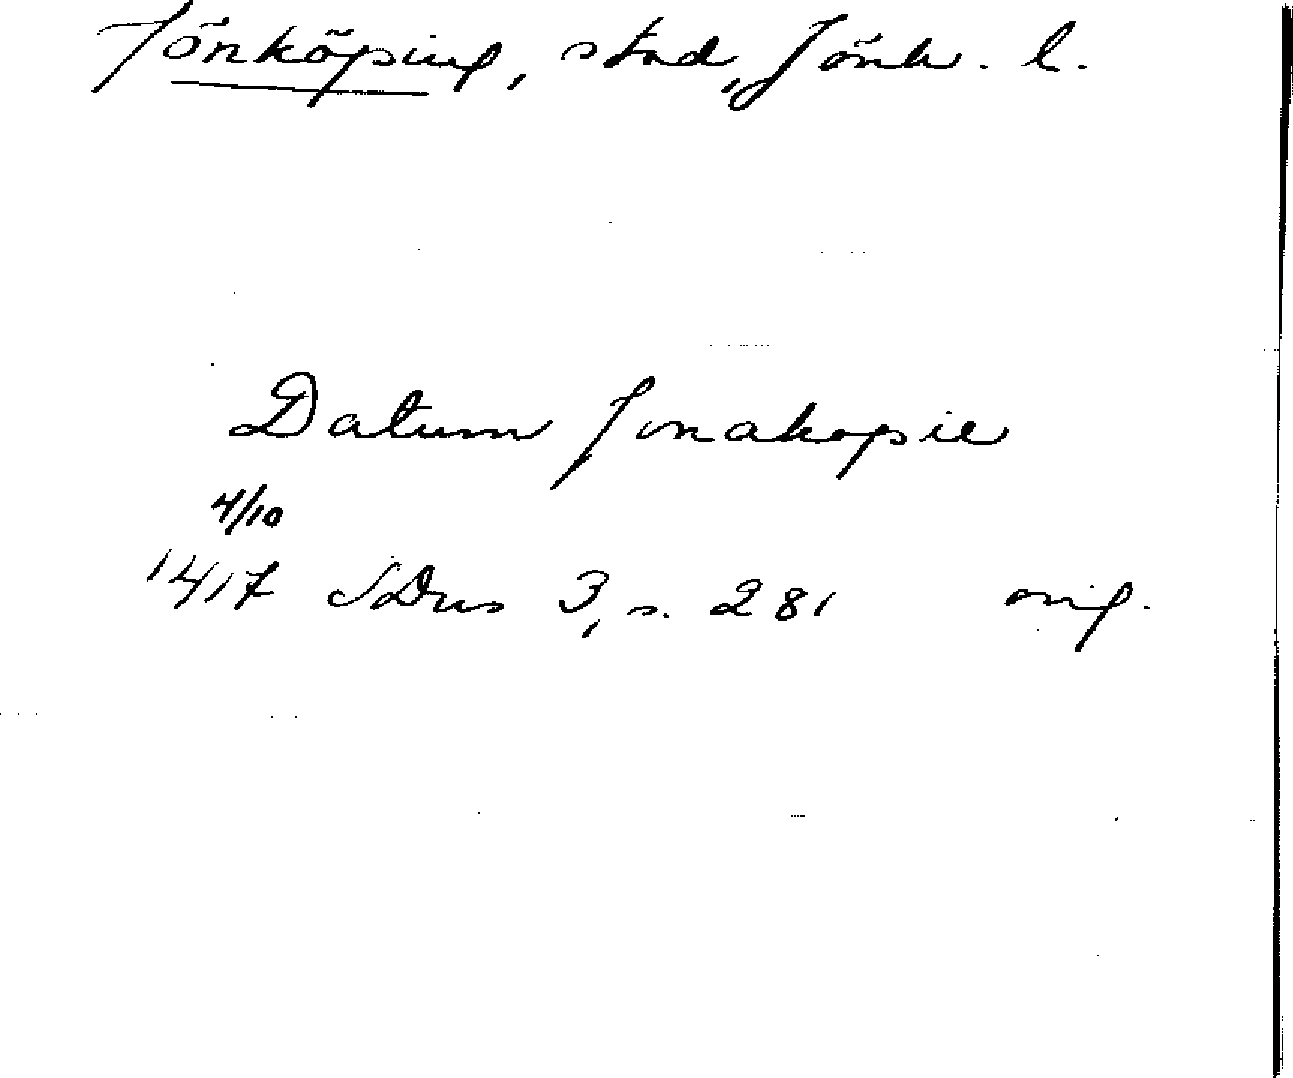 Jönköping, stad, Jönk. l.
Datum Jonakopie
4/10
1417 SDns 3, s. 281 orig.